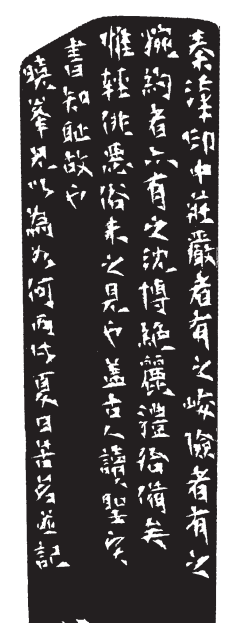 秦漢印中莊嚴者有之峻險者有之
婉約者亦有之沈博絕麗備矣
惟輕佻惡俗未之見也蓋古人讀聖賢
書知恥故也
曉峯兄以為如何丙戌夏日苦並記